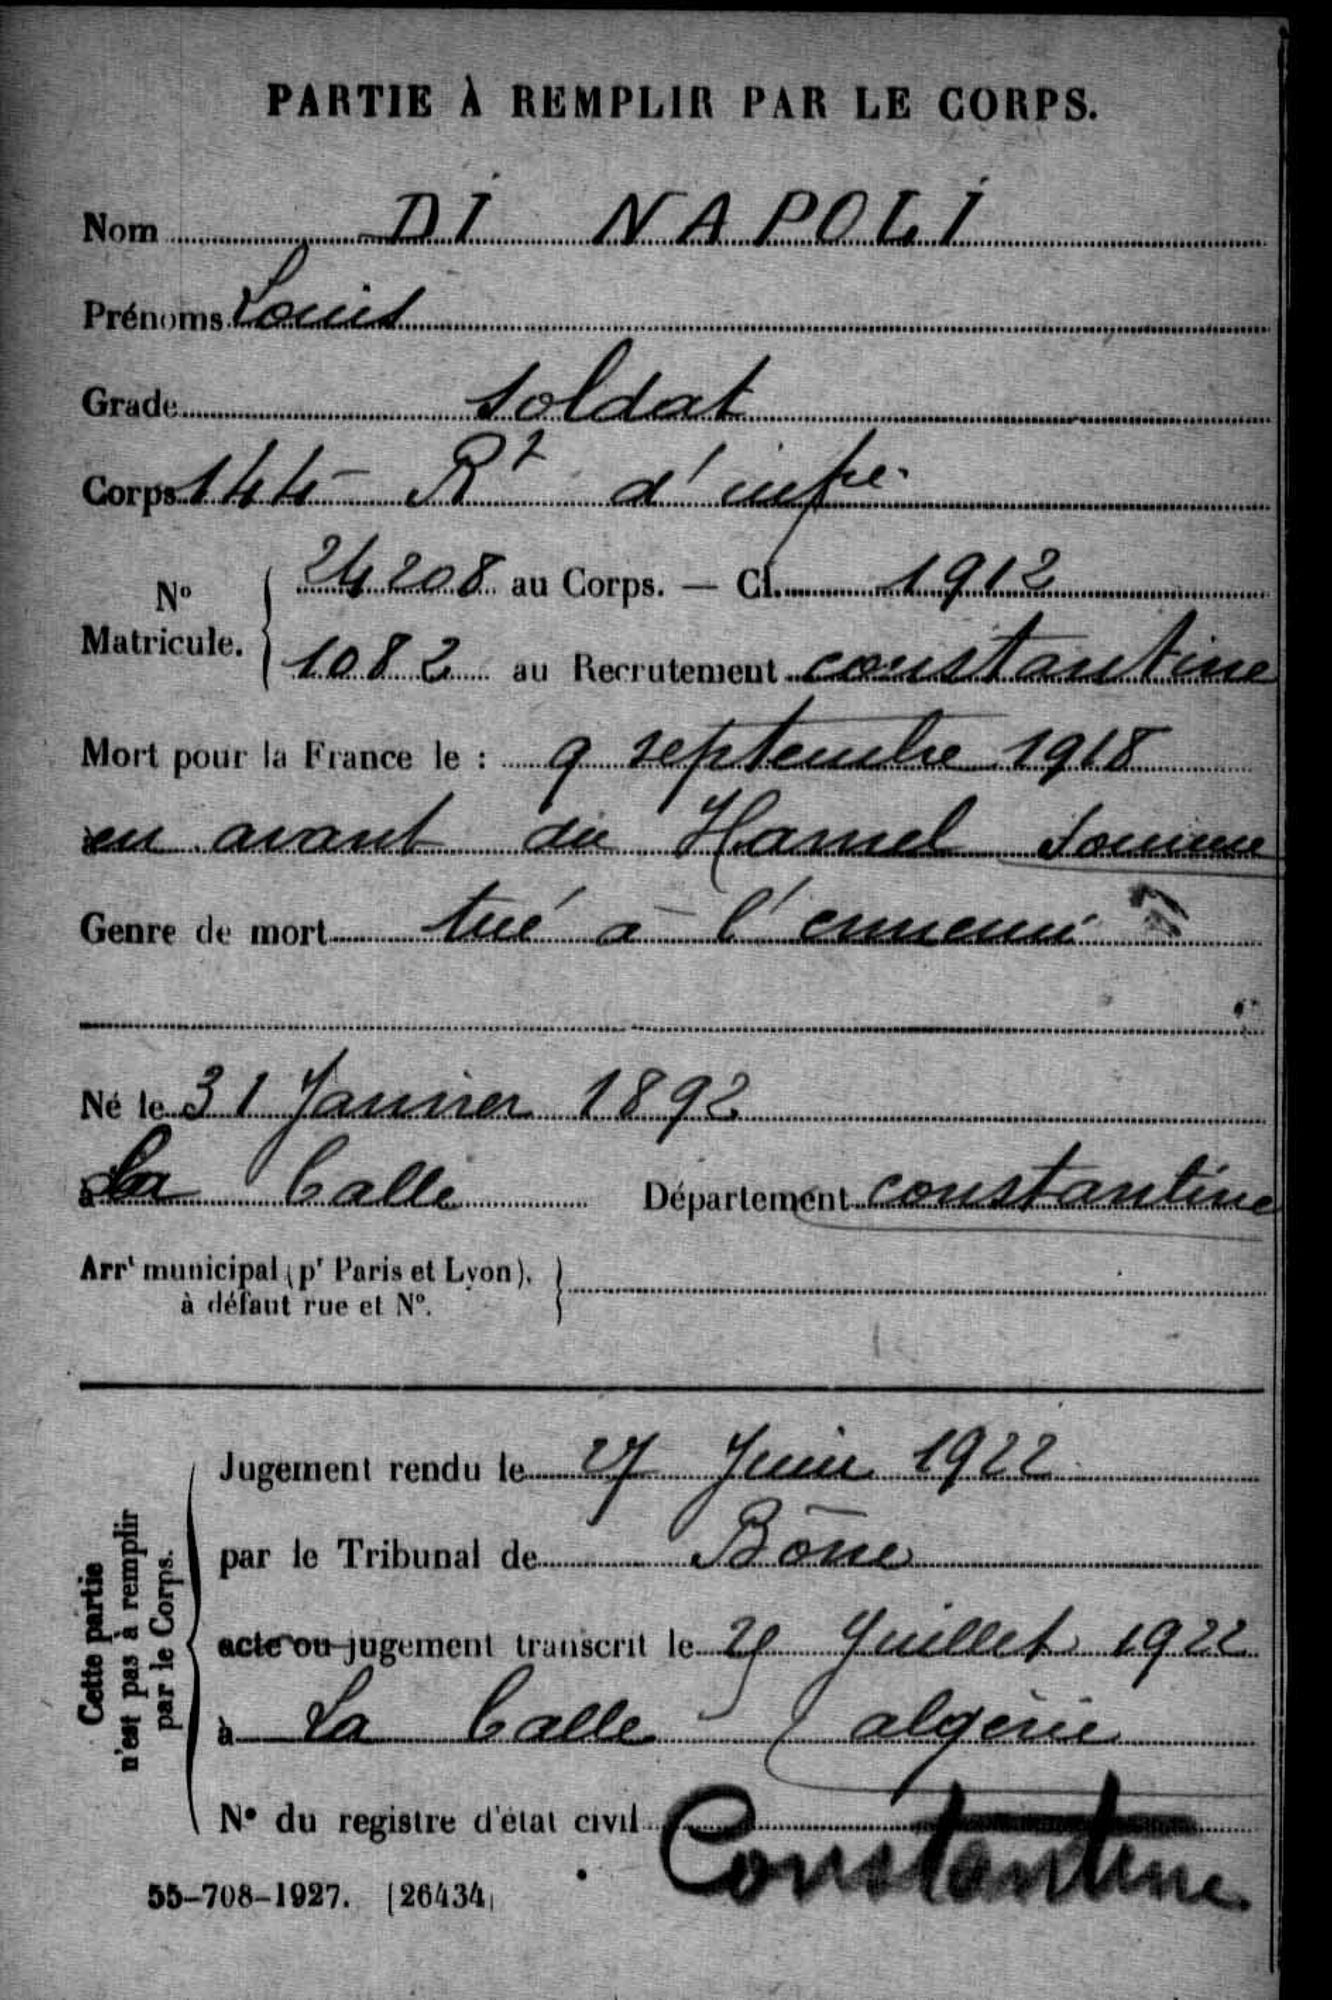 PARTIE À REMPLIR PAR LE CORPS.
Nom DI NAPOLI
Prénoms Louis
Grade soldat
Corps 144 Rt d'infie
No Matricule. 24208 au Corps. — Cl. 1912
1082 au Recrutement constantine
Mort pour la France le : 9 septembre 1918
en avant du Hamel Somme
Genre de mort tué à l'ennemi
Né le 31 Janvier 1892
à La Calle Département constantine
Arrt municipal (pr Paris et Lyon),
à défaut rue et No.
Cette partie
n'est pas à remplir
par le Corps.
Jugement rendu le 27 Juin 1922
par le Tribunal de Bône
acte ou jugement transcrit le Juillet 1922
à La Calle algérie
No du registre d'état civil
Constantine
55-708-1927. [26434]